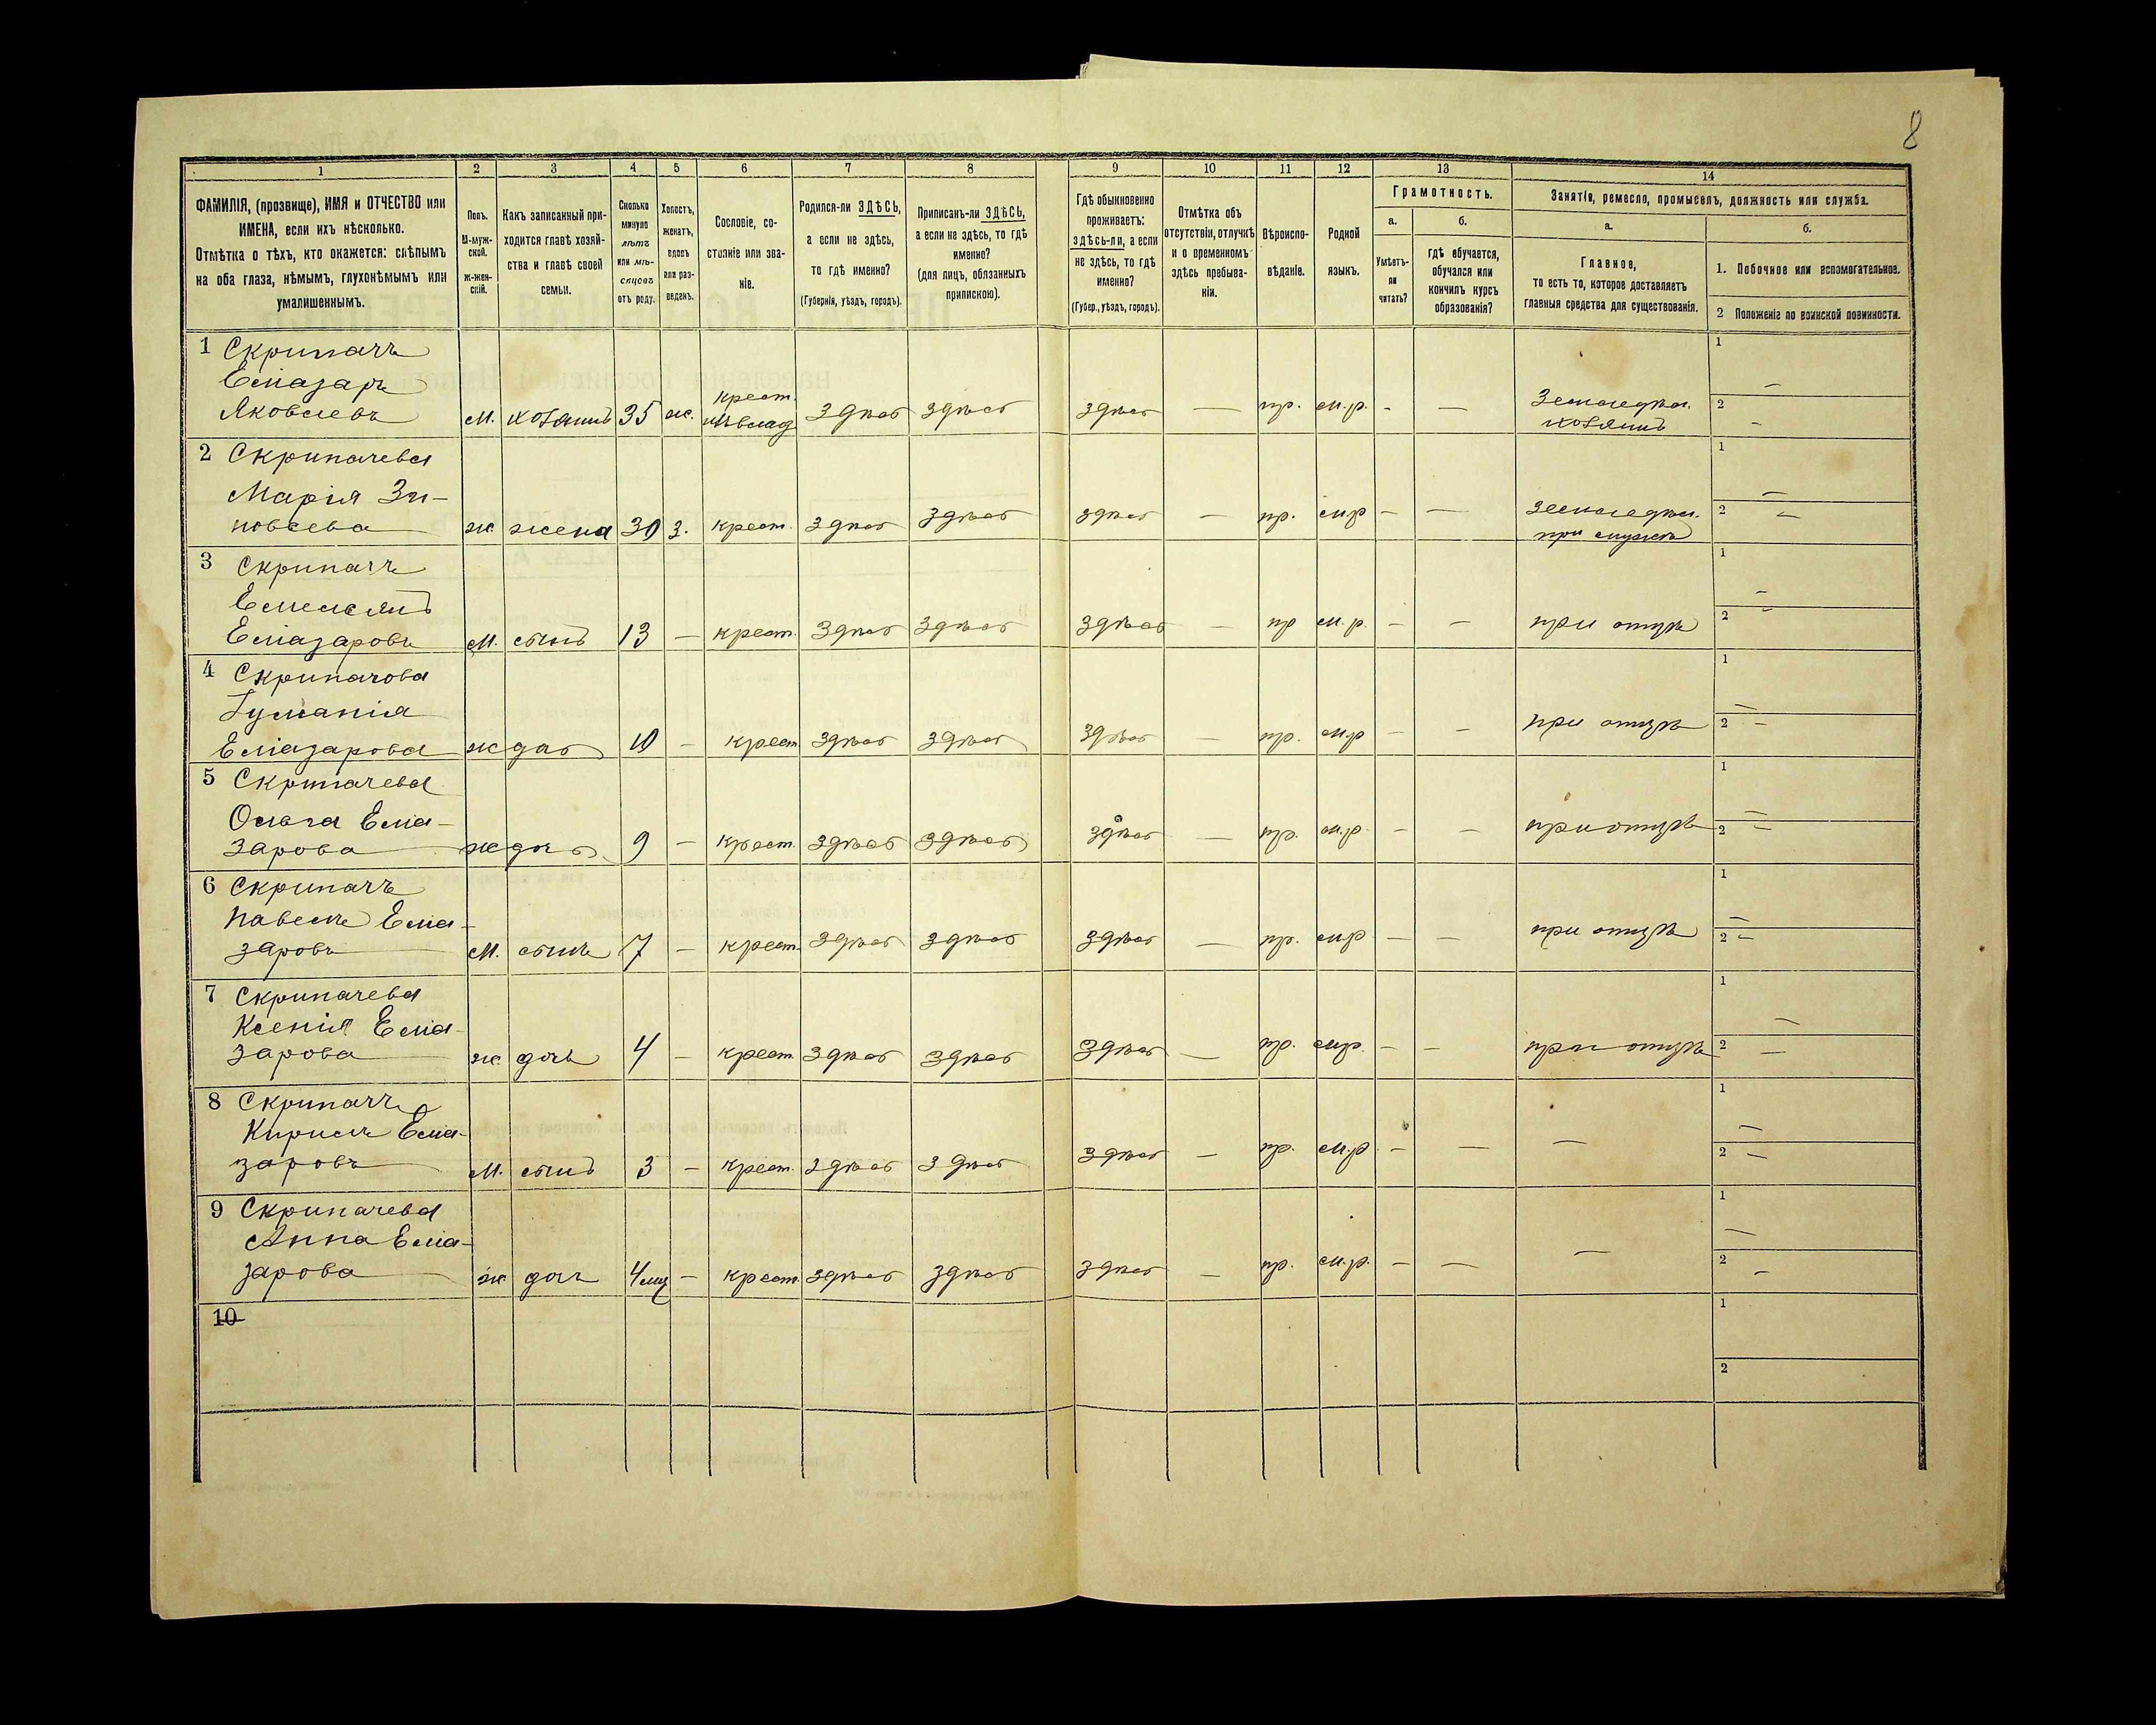 8
1 2 3 4 5 6 7 8 9 10 11 12 13 14
ФАМИЛІЯ, (прозвище), ИМЯ и ОТЧЕСТВО или
ИМЕНА, если ихъ нѣсколько.
Отмѣтка о тѣхъ, кто окажется: слѣпымъ
на оба глаза, нѣмымъ, глухонѣмымъ или
умалишеннымъ.
Полъ.
М-муж-
ской.
Ж-жен-
скій.
Какъ записанный при-
ходится главѣ хозяй-
ства и главѣ своей
семьи.
Сколько
минуло
лѣтъ
или мѣ-
сяцевъ
отъ роду.
Холостъ,
женатъ,
вдовъ
или раз-
веденъ.
Сословіе, со-
стояніе или зва-
ніе.
Родился-ли ЗДѢСЬ,
а если не здѣсь,
то гдѣ именно?
(Губернія, уѣздъ, городъ).
Приписанъ-ли ЗДѢСЬ,
а если не здѣсь, то гдѣ
именно?
(для лицъ, обязанныхъ
припискою).
Гдѣ обыкновенно
проживаетъ:
здѣсь-ли, а если
не здѣсь, то гдѣ
именно?
(Губер., уѣздъ, городъ).
Отмѣтка объ
отсутствіи, отлучкѣ
и о временномъ
здѣсь пребыва-
ніи.
Вѣроиспо-
вѣданіе.
Родной
языкъ.
Грамотность.
а.
Умѣетъ-
ли
читать?
б.
гдѣ обучается,
обучался или
кончилъ курсъ
образованія?
Занятіе, ремесло, промыселъ, должность или служба.
а.
Главное,
то есть то, которое доставляетъ
главныя средства для существованія.
б.
1. Побочное или вспомогательное.
2 Положеніе по воинской повинности.
1 Скрипачъ
Еліазаръ
Яковлевъ м. хозяинъ 35 ж. крест. здѣсь здѣсь здѣсь — пр. м.р. - — Земледѣл. 1 —
хозяинъ 2 —
2 Скрипачева
Марія Зи-
новьева ж жена 30 з. крест. здѣсь здѣсь здѣсь — пр. м.р — — земледѣл. 1 —
при мужѣ 2 —
3 Скрипачъ
Емельянъ
Еліазаровъ м. сынъ 13 — крест. здѣсь здѣсь здѣсь — пр м.р. — — при отцѣ 1 — 2 —
4 Скрипачова
Еліазарова ж дочь 10 — крест здѣсь здѣсь здѣсь — пр. м.р — — при отцѣ 1 — 2 —
5 Скрипачева
Ольга Еліа-
зарова ж дочь 9 — крест. здѣсь здѣсь здѣсь — пр. м.р. — — при отцѣ 1 — 2 —
6 Скрипачъ
Павелъ Еліа-
заровъ м. сынъ 7 — крест. здѣсь здѣсь здѣсь — пр. м.р — — при отцѣ 1 — 2 —
7 Скрипачева
Ксенія Еліа-
зарова ж. дочь 4 — крест здѣсь здѣсь здѣсь — пр. м.р. — — при отцѣ 1 — 2 —
8 Скрипачъ
Кирилъ Еліа-
заровъ м. сынъ 3 — крест. здѣсь здѣсь здѣсь — пр. м.р — — — 1 — 2 —
9 Скрипачева
Анна Еліа-
зарова ж дочь 4 мц — крест. здѣсь здѣсь здѣсь — пр. м.р. — — — 1 — 2 —
10 1
2